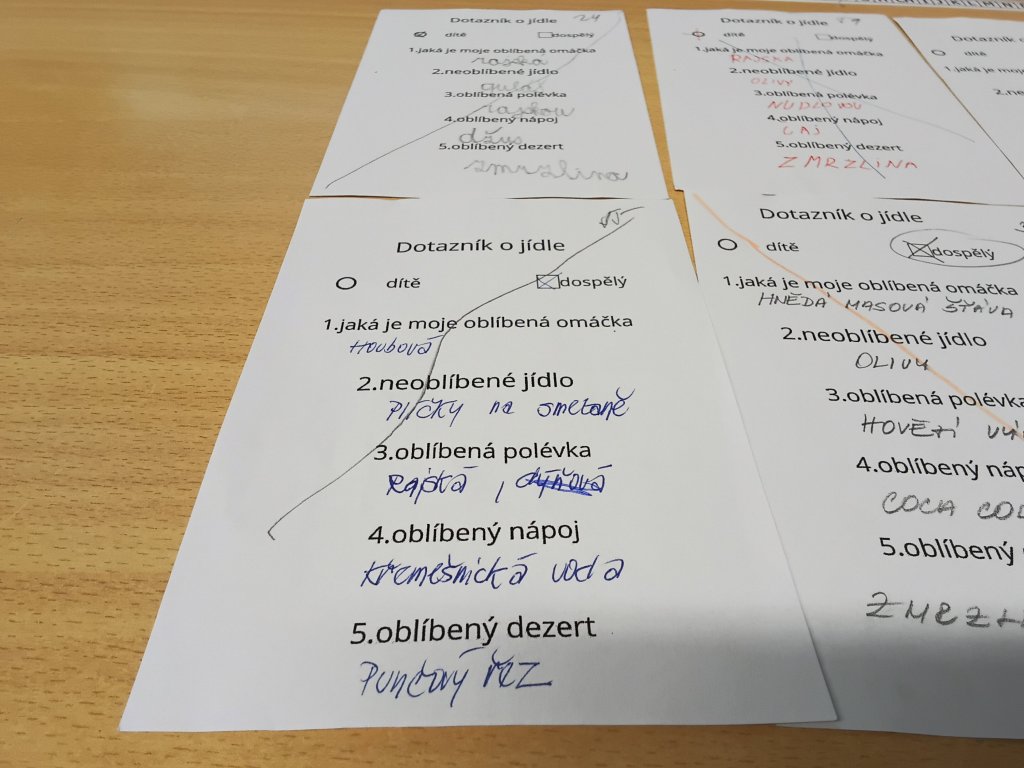 Dotazník o jídle 24
dítě dospělý
1.jaká je moje oblíbená omáčka
rajska
2.neoblíbené jídlo
3.oblíbená polévka
4.oblíbený nápoj
džus
5.oblíbený dezert
zmrzlina
Dotazník o jídle
dítě dospělý
1.jaká je moje oblíbená omáčka
RAJSKA
2.neoblíbené jídlo
OLIVY
3.oblíbená polévka
NUDLOVOU
4.oblíbený nápoj
ČAJ
5.oblíbený dezert
ZMRZLINA
Dotazník o
dítě
1.jaká je moje
2.ne
Dotazník o jídle
dítě dospělý
1.jaká je moje oblíbená omáčka
Houbová
2.neoblíbené jídlo
Plíčky na smetaně
3.oblíbená polévka
Rajská ,
4.oblíbený nápoj
Křemešnická voda
5.oblíbený dezert
Punčový řez
Dotazník o jídle
dítě dospělý
1.jaká je moje oblíbená omáčka
HNĚDÁ MASOVÁ ŠŤÁVA
2.neoblíbené jídlo
OLIVY
3.oblíbená polévka
HOVĚZÍ
4.oblíbený náp
COCA COL
5.oblíbený
ZMRZL